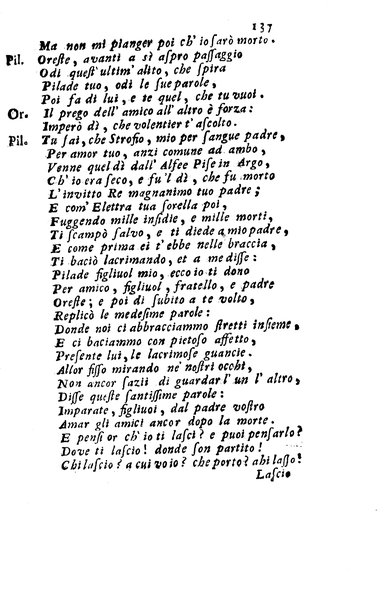 137
Ma non mi planger poi ch' io ſarò morto.
Pil. Oreſte, avanti a sì aſpro paſſaggio
Odi queſt' ultim' alito, che ſpira
Pilade tuo, odi le ſue parole,
Poi fa di lui, e te quel, che tu vuoi.
Or. Il prego dell' amico all' altro è forza:
Imperò dì, che volentier t' aſcolto.
Pil. Tu ſai, che Strofio, mio per ſangue padre,
Per amor tuo, anzi comune ad ambo,
Venne quel dì dall' Alfee Piſe in Argo,
Ch' io era ſeco, e fu 'l dì, che fu morto
L' invitto Re magnanimo tuo padre;
E com' Elettra tua ſorella poi,
Fuggendo mille inſidie, e mille morti,
Ti ſcampò ſalvo, e ti diede a mio padre,
E come prima ei t' ebbe nelle braccia,
Ti baciò lacrimando, et a me diſſe:
Pilade figliuol mio, ecco io ti dono
Per amico, figliuol, fratello, e padre
Oreſte; e poi di ſubito a te volto,
Replicò le medeſime parole:
Donde noi ci abbracciammo ſtretti inſieme,
E ci baciammo con pietoſo affetto,
Preſente lui, le lacrimoſe guancie.
Allor fiſſo mirando ne' noſtri occhi,
Non ancor ſazii di guardar l' un l' altro,
Diſſe queſte ſantiſſime parole:
Imparate, figliuoi, dal padre voſtro
Amar gli amici ancor dopo la morte.
E penſi or ch' io ti laſci? e puoi penſarlo?
Dove ti laſcio! donde ſon partito!
Chi laſcio? a cui vo io? che porto? ahi laſſo!
Laſcio